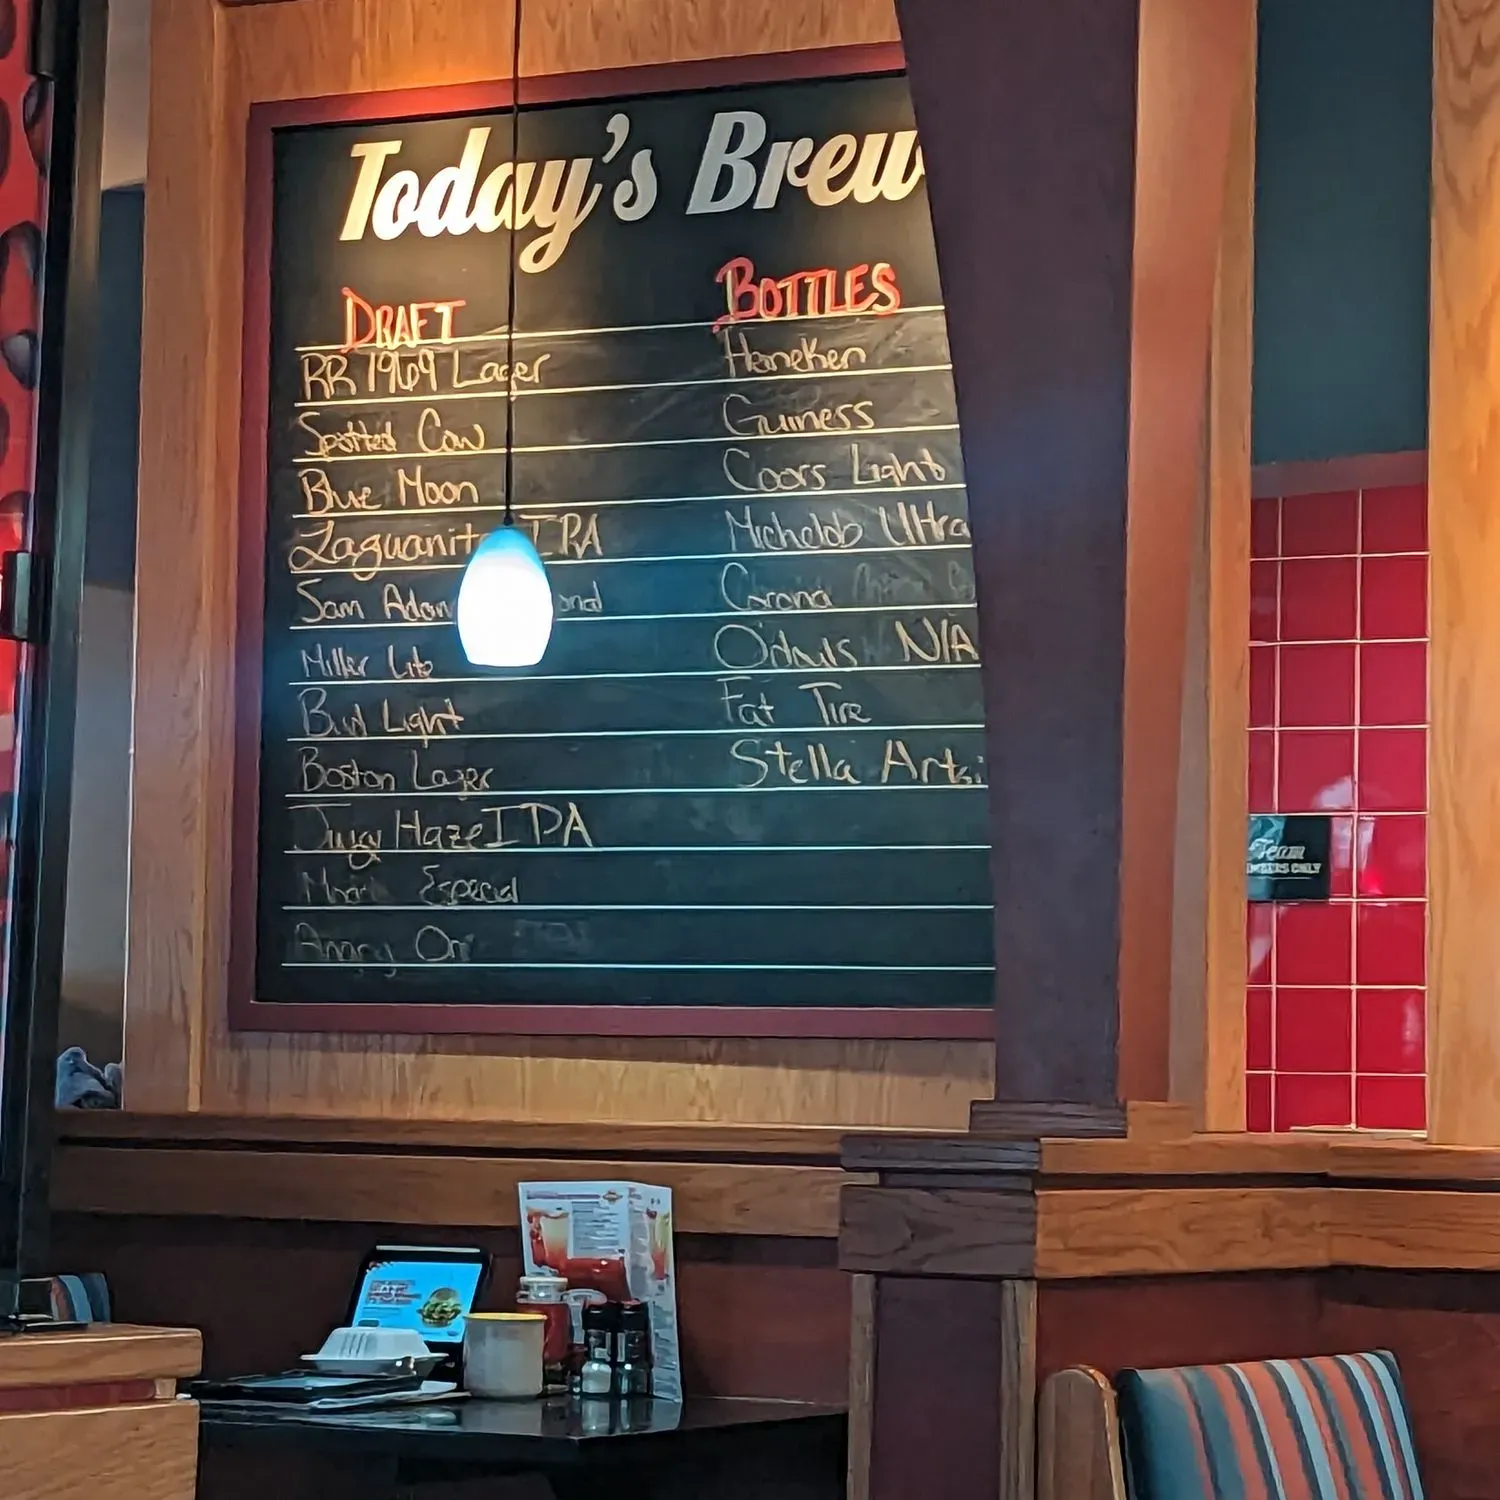 Today's Brew
DRAFT
RR 1969 Lager
Spotted Cow
Blue Moon
Laguanit IPA
Sam Adam ond
Miller Lite
Bud Light
Boston Lager
Juicy Haze IPA
Especial
Angry Or
BOTTLES
Heineken
Guiness
Coors Light
Michelob Ultra
Corona
O'douls N/A
Fat Tire
Stella Artoi
Team
MBERS ONLY